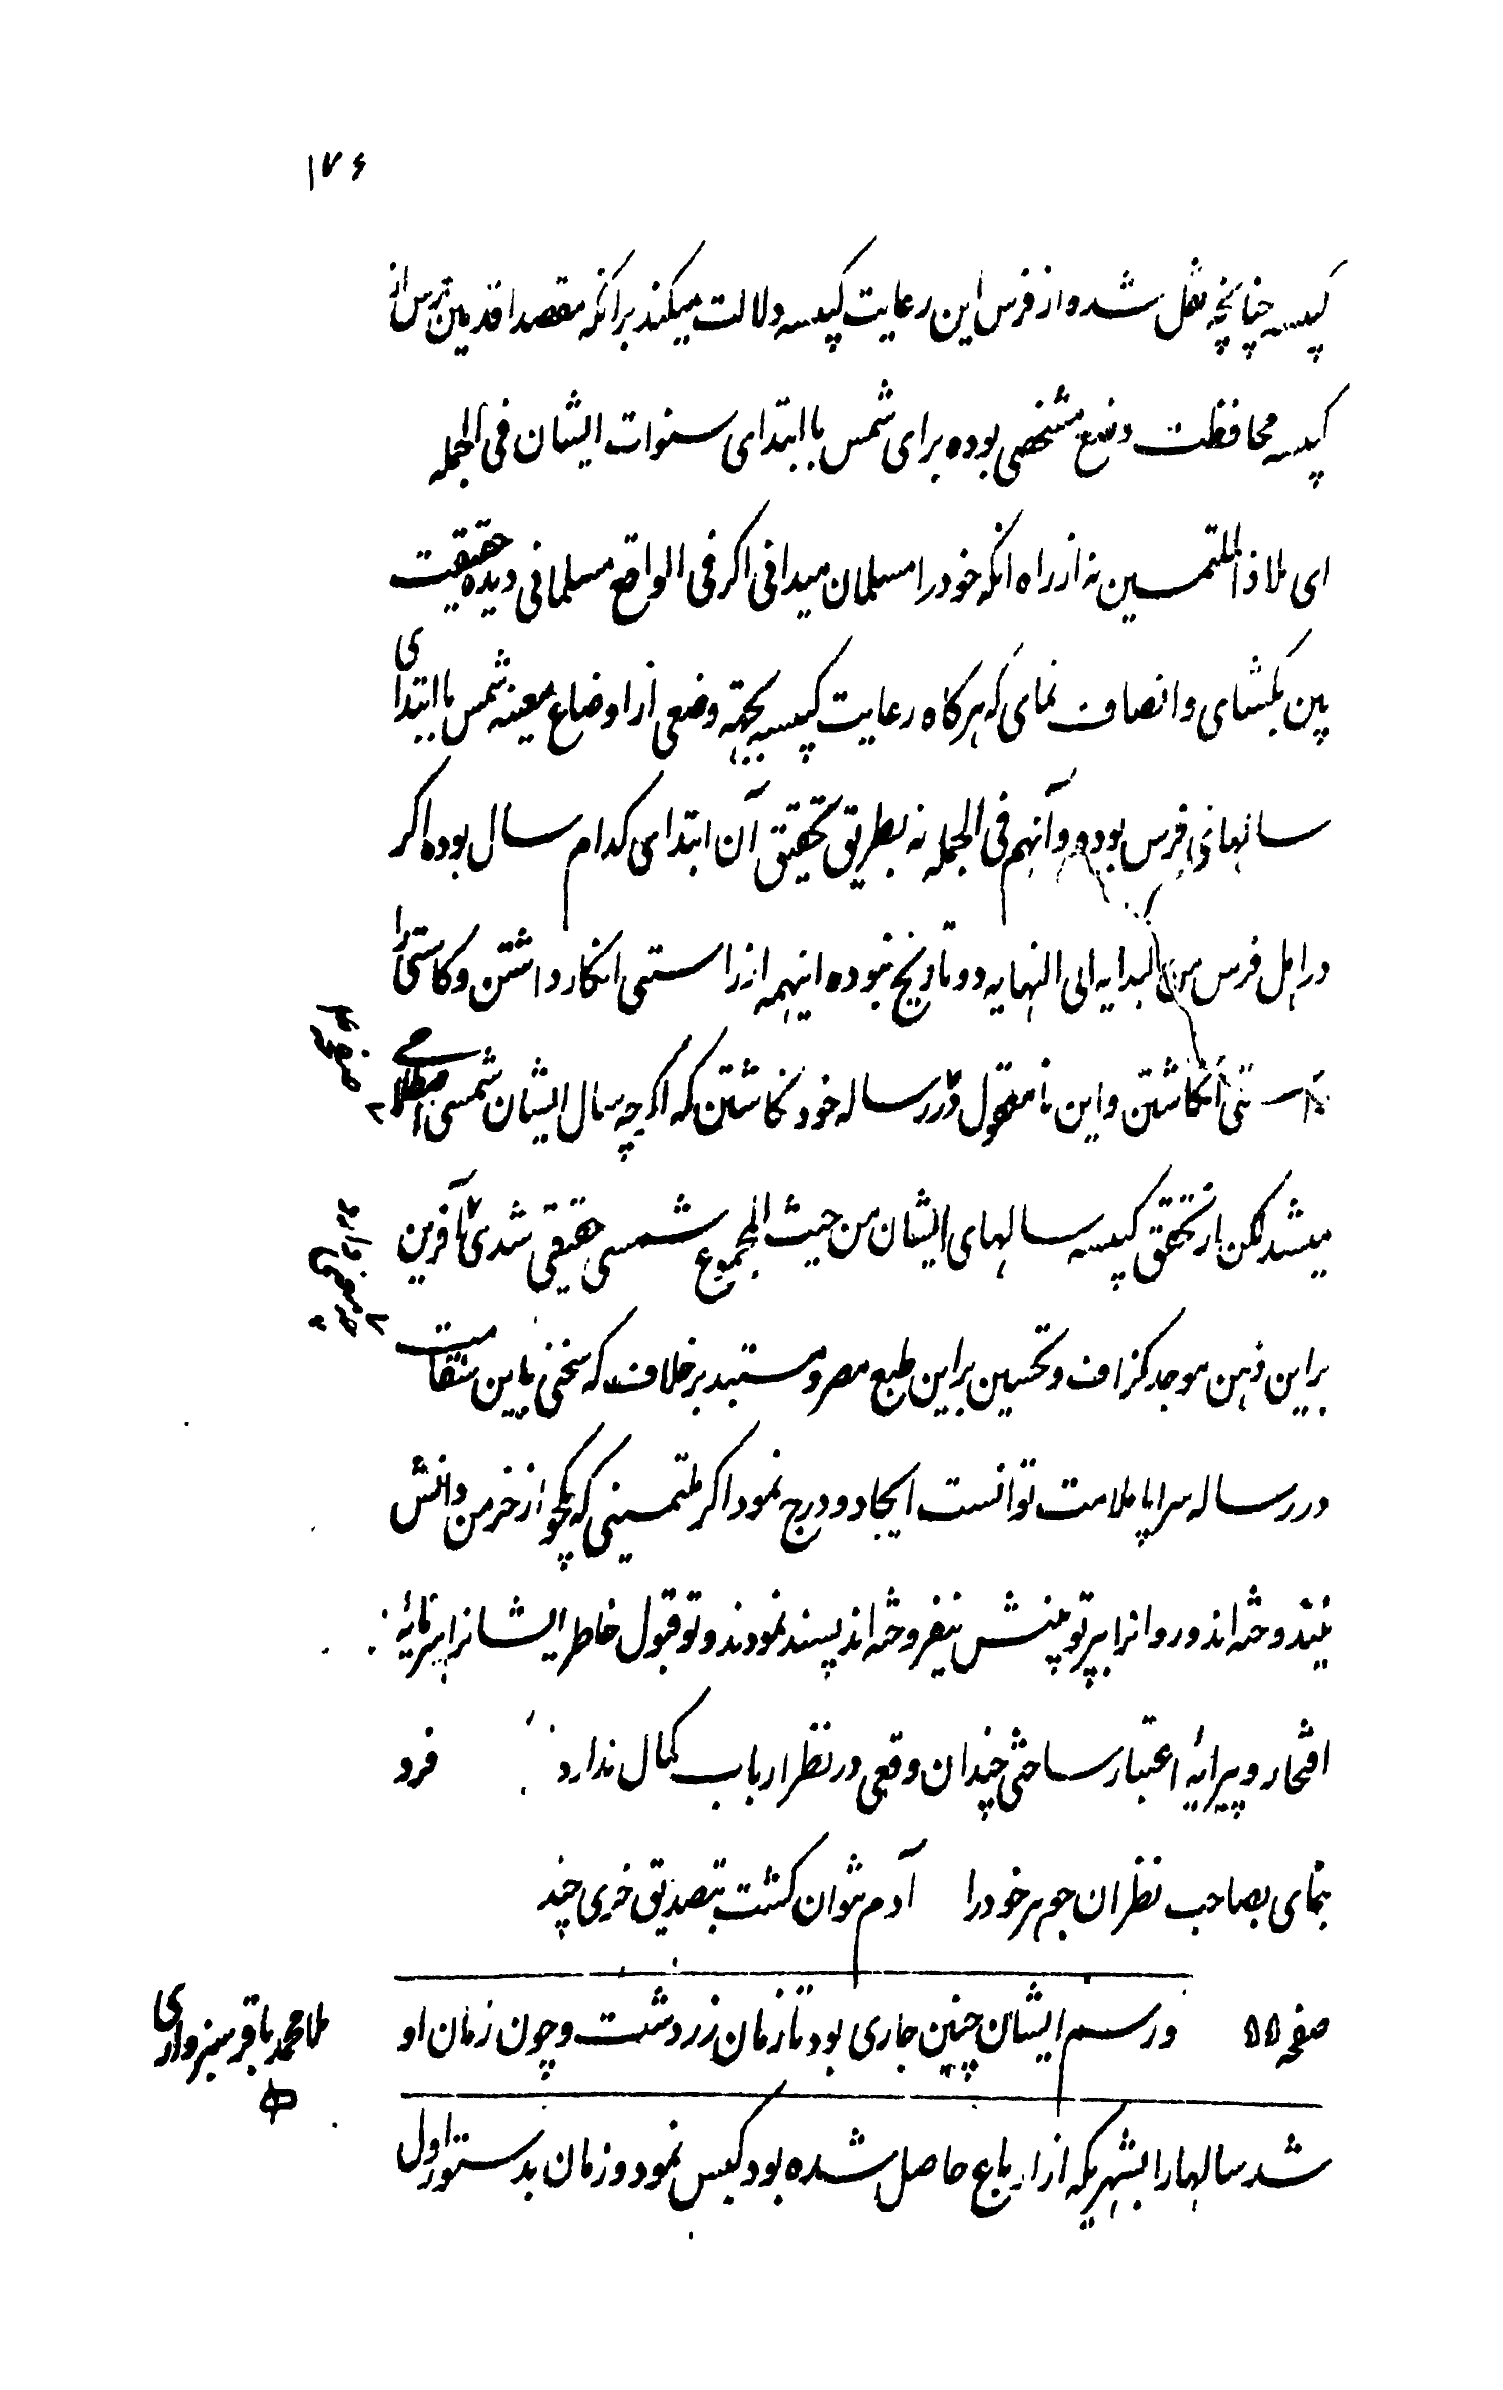 ۱۷۶
کبیسه چنانچه نقل شده از فرس این رعایت کپیسه دلالت میکند برانکه مقصد اقدمین فرس از
کبیسه محافظت وضع مشخصی بوده برای شمس باابتدای سنوات ایشان فی الجمله
ای ملاذ الملتمسین نه از راه انکه خود را مسلمان میدانی اکر فی الواقع مسلمانی دیده حقیقت
بین بکشای و انصاف نمای که هرکاه رعایت کپیسه بجهته وضعی از اوضاع معینه شمس باابتدای
سالهای فرس بوده و آنهم فی الجمله نه بطریق تحقیق آن ابتدای کدام سال بوده اکر
در اهل فرس من البدایه الی النهایه دو تاریخ نبوده اینهمه از راستی انکار داشتن و کاستی را
راستی انکاشتن و این نامقبول در رساله خود نکاشتن که اکرچه سال ایشان شمسی اصطلاحی
میشد لکن از تحقق کبیسه سالهای ایشان من حیث المجموع شمسی حقیقی شدی آفرین
بر این ذهن موجد کزاف و تحسین بر این طبع مصر و مستبد بر خلاف که سخنی باین متقامت
در رساله سراپا ملامت توانست ایجاد و درج نمود اکر ملتمسینی که یکجو از خرمن دانش
نیندوخته اند و روانرا بپرتو بینش نیفروخته اند پسند نمودند و تو قبول خاطر ایشانرا سرمایه
افتخار و پیرایه اعتبار ساختی چندان وقعی در نظر ارباب کمال ندارد فرد
بنمای بصاحب نظران جوهر خود را آدم نتوان کشت بتصدیق خری چند
صفحه ۵۵ و رسم ایشان چنین جاری بود تا زمان زردشت و چون زمان او
ملا محمد باقر سبزواری
شد سالها را بشهریکه از ارباع حاصل شده بود کبس نمود و زمان بدستور اول